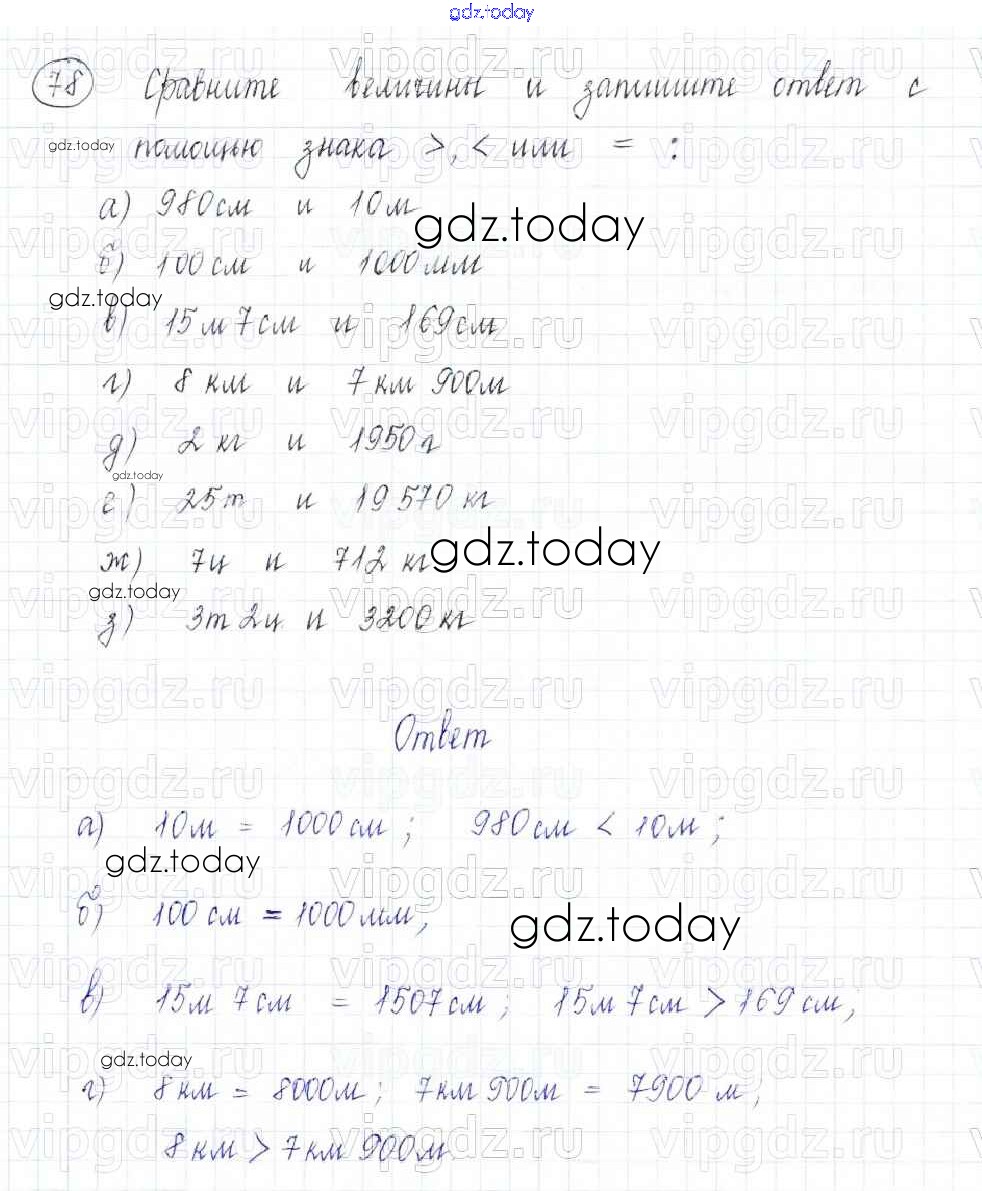 gdz.today
78 Сравните величины и запишите ответ с
gdz.today помощью знака >, < или = :
а) 980 см и 10 м
gdz.today
б) 100 см и 1000 мм
gdz.today
в) 15 м 7 см и 169 см
г) 8 км и 7 км 900 м
д) 2 кг и 1950 г
gdz.today
е) 25 т и 19 570 кг
ж) 7 ц и 712 кг
gdz.today
gdz.today
з) 3 т 2 ц и 3200 кг
Ответ
а) 10 м = 1000 см ; 980 см < 10 м ;
gdz.today
б) 100 см = 1000 мм ;
gdz.today
в) 15 м 7 см = 1507 см ; 15 м 7 см > 169 см ;
gdz.today
г) 8 км = 8000 м ; 7 км 900 м = 7900 м ;
8 км > 7 км 900 м
vipgdz.ru vipgdz.ru vipgdz.ru